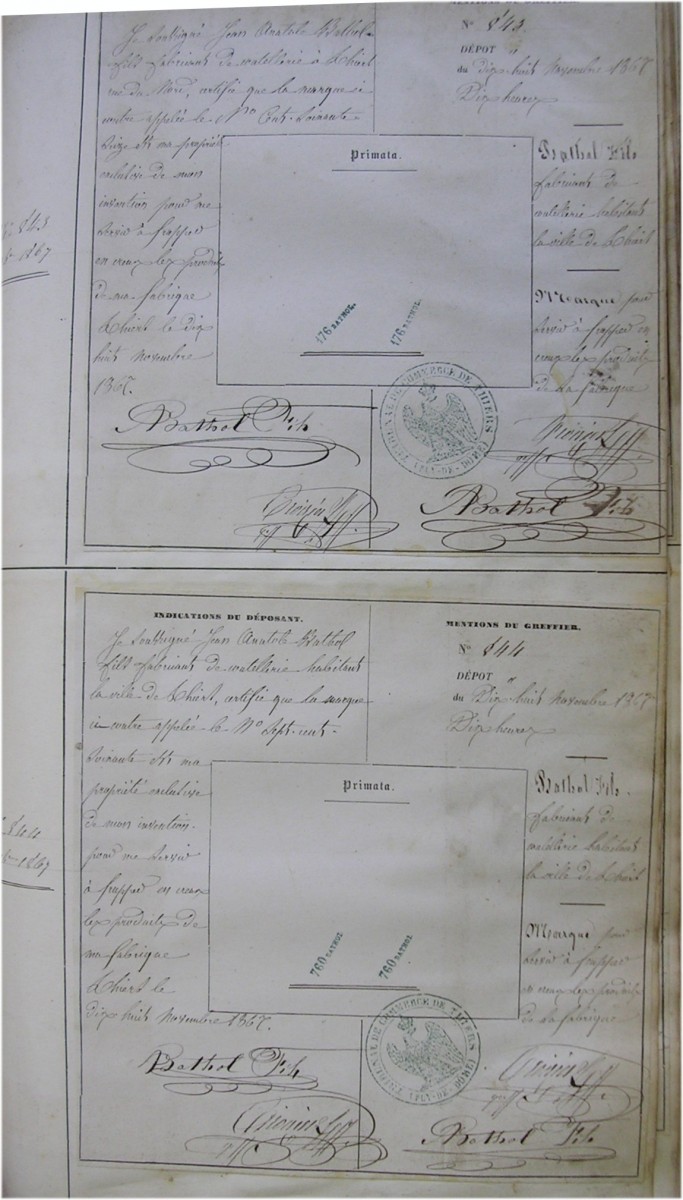 Je soussigné Jean Anatole Bathol
fils fabricant de coutellerie à Thiers
rue du Nord, certifie que la marque ci
contre appelée le Nº Cent-soixante-
seize est ma propriété
exclusive de mon
invention pour me
servir à frapper
en creux les produits
de ma fabrique
Thiers le dix
huit Novembre
1867.
Bathol Fils
Primata.
176 BATHOL
176 BATHOL
MENTIONS DU GREFFIER.
Nº 843
DÉPÔT
du dix-huit Novembre 1867
Dix heures
Bathol Fils
fabricant de
coutellerie habitant
la ville de Thiers
Marque pour
servir à frapper en
creux les produits
de sa fabrique
TRIBUNAL DE COMMERCE DE THIERS (PUY-DE-DOME)
Bathol Fils
Nº 843
1867
INDICATIONS DU DÉPOSANT.
Je soussigné Jean Anatole Bathol
fils fabricant de coutellerie habitant
la ville de Thiers, certifie que la marque
ci-contre appelée le Nº Sept-cent-
soixante est ma
propriété exclusive
de mon invention
pour me servir
à frapper en creux
les produits de
ma fabrique
Thiers le
dix huit Novembre 1867.
Bathol Fils
Primata.
760 BATHOL
760 BATHOL
MENTIONS DU GREFFIER.
Nº 844
DÉPÔT
du Dix-huit Novembre 1867
Dix heures
Bathol Fils
fabricant de
coutellerie habitant
la ville de Thiers
Marque pour
servir à frapper
en creux les produits
de sa fabrique
TRIBUNAL DE COMMERCE DE THIERS (PUY-DE-DOME)
Bathol Fils
844
1867